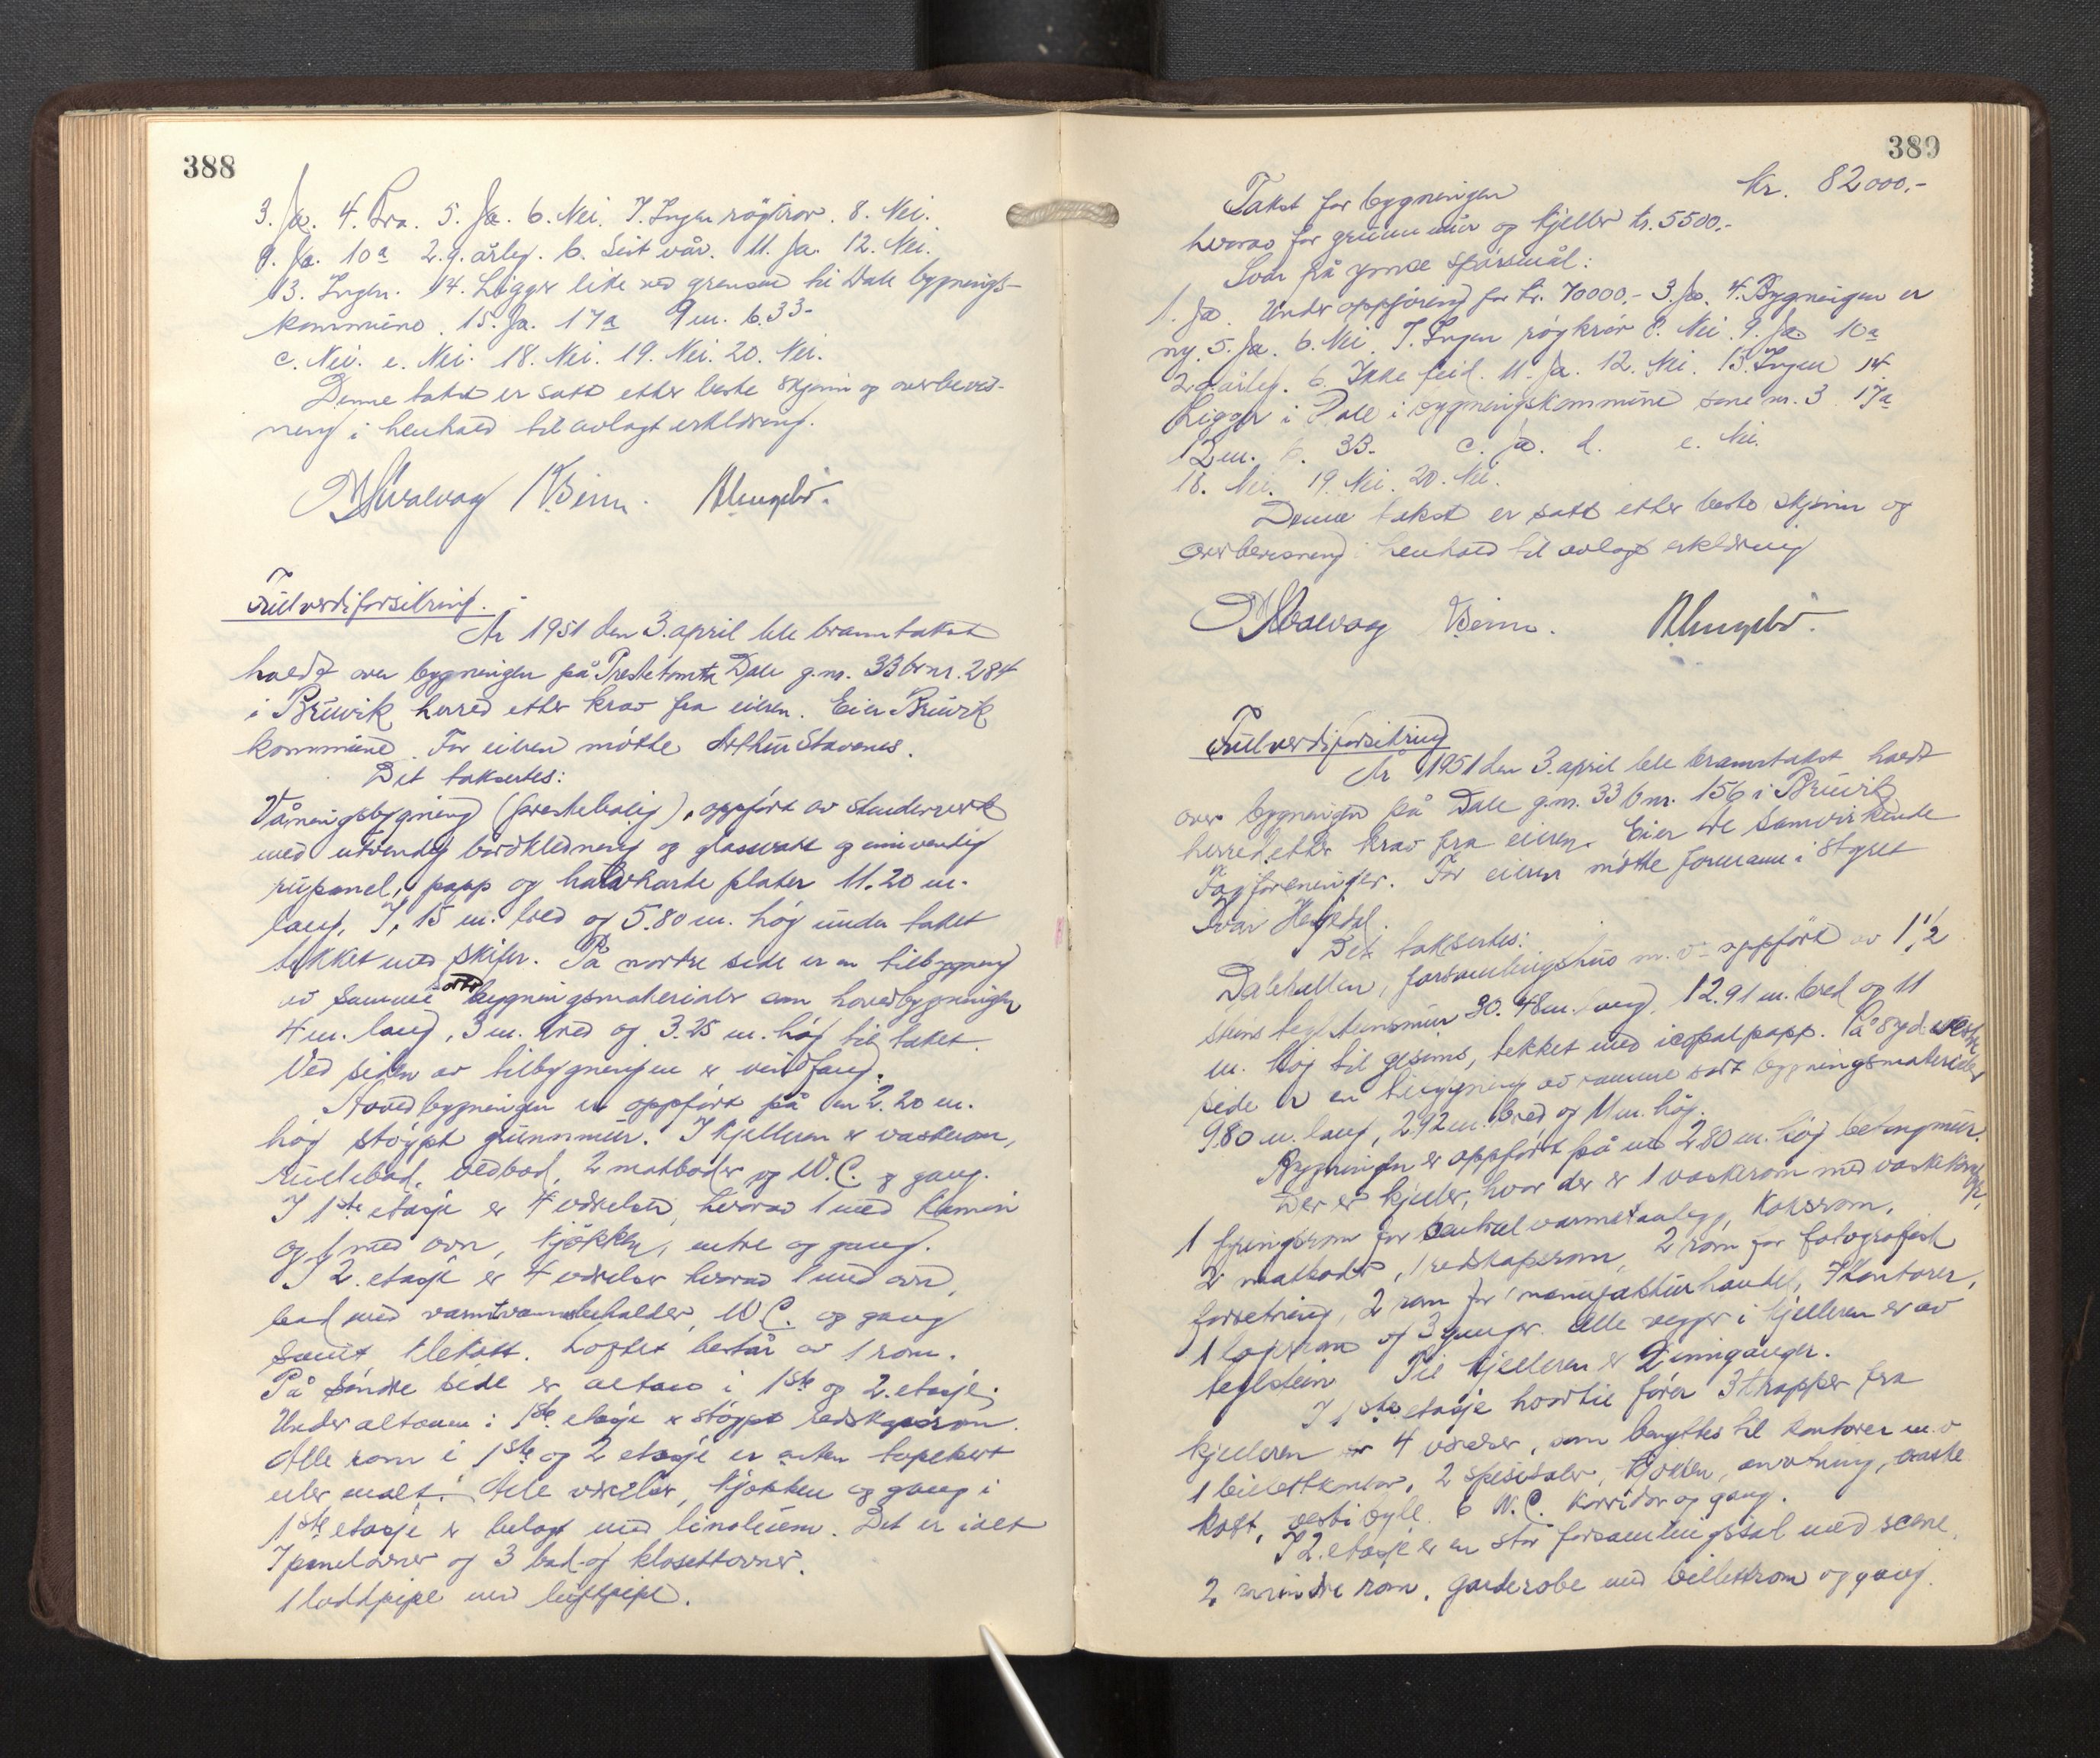 388
3. Ja. 4. Bra. 5. Ja. 6. Nei. 7. Ingen rögkrör. 8. Nei.
9. Ja. 10a 2.g. årleg. b. Sist vår. 11. Ja. 12. Nei.
13. Ingen. 14. Ligger like ved grensen til Dale bygnings-
kommune. 15. Ja. 17a 9 m. b. 33-
c. Nei. e. Nei. 18. Nei. 19. Nei. 20. Nei.
Denne takst er satt etter beste skjönn og overbevis-
ning i henhold til avlagt erklæring.
Fullverdiforsikring.
År 1951 den 3. april ble branntakst
holdt over bygningen på Prestetomta Dale g.nr. 33 br.nr. 284
i Bruvik herred etter krav fra eieren. Eier Bruvik
kommune. For eieren mötte Arthur Stavenes.
Det taksertes:
Våningsbygning (prestebolig), oppfört av stenderverk
med utvendig bordkledning og glassvatt og innvendig
rupanel, papp og halvharte plater 11.20 m.
lang, 7,15 m. bred og 5.80 m. höy under taket
tekket med skifer. På nordre side er en tilbygning
av samme sort bygningsmaterialer som hovedbygningen
4 m. lang, 3 m. bred og 3.25 m. höy til taket.
Ved siden av tilbygningen er vindfang.
Hovedbygningen er oppfört på en 2.20 m.
höy stöypt grunnmur. I kjelleren er vaskerom,
rullebod, vedbod, 2 matboder og W.C. og gang.
I 1ste etasje er 4 værelser, hvorav 1 med kamin
og 1 med ovn, kjökken, entre og gang.
I 2. etasje er 4 værelser hvorav 1 med ovn,
bad med varmtvannsbeholder, W.C. og gang
samt klekott. Loftet består av 1 rom.
På söndre side er altan i 1ste og 2. etasje.
Under altanen i 1ste etasje er stöypt redskapsrom.
Alle rom i 1ste og 2 etasje er enten tapetsert
eller malt. Alle værelser, kjökken og gang i
1ste etasje er belagt med linoleum. Det er ialt
7 panelovner og 3 bad- og klosettovner.
1 loddpipe med luftpipe.
389
Takst for bygningen kr. 82000,-
hvorav for grunnmur og kjeller kr. 5500,-
Svar på ymse spörsmål:
1. Ja. Under oppföring for kr. 70000,- 3. Ja. 4. Bygningen er
ny. 5. Ja. 6. Nei. 7. Ingen rögkrör 8. Nei. 9. Ja. 10a
2.g. årleg. b. Ikke feid. 11. Ja. 12. Nei. 13. Ingen 14.
Ligger i Dale i bygningskommune sone nr. 3 17a
12 m. b. 33. c. Ja. d. e. Nei.
18. Nei. 19. Nei. 20. Nei.
Denne takst er satt etter beste skjönn og
overbevisning i henhold til avlagt erklæring
Fullverdiforsikring
År 1951 den 3. april ble branntakst holdt
over bygningen på Dale g.nr. 33 b.nr. 156 i Bruvik
herred etter krav fra eieren. Eier De Samvirkende
Fagforeninger. For eieren mötte formann i styret
Ivar
Det taksertes:
Dalehallen, forsamlingshus m.v. oppfört av 1 1/2
steins teglsteinsmur 30.48 m. lang, 12.91 m. bred og 11
m. höy til gesims, tekket med icopalpapp. På syd-vestre
side er en tilbygning av samme sort bygningsmaterialer
9.80 m. lang, 2.92 m. bred og 11 m. höy.
Bygningen er oppfört på en 2.80 m. höy betongmur.
Der er kjeller, hvor der er 1 vaskerom med vaskekomfyr,
1 fyringsrom for sentralvarmeanlegg, koksrom,
2 matboder, 1 redskapsrom, 2 rom for fotografisk
forretning, 2 rom for manufakturhandel, 7 kontorer,
1 lagerrom og 3 ganger. Alle vegger i kjelleren er av
teglstein. Til kjelleren er 2 innganger.
I 1ste etasje hvortil förer 3 trapper fra
kjelleren er 4 værelser, som benyttes til kontorer m.v.
1 billettkontor, 2 spisesaler, kjökken, anretning, vaske
kott, vestibyle. 6 W.C. korridor og gang.
I 2. etasje er en stor forsamlingssal med scene,
2 mindre rom, garderobe med billettrom og gang.